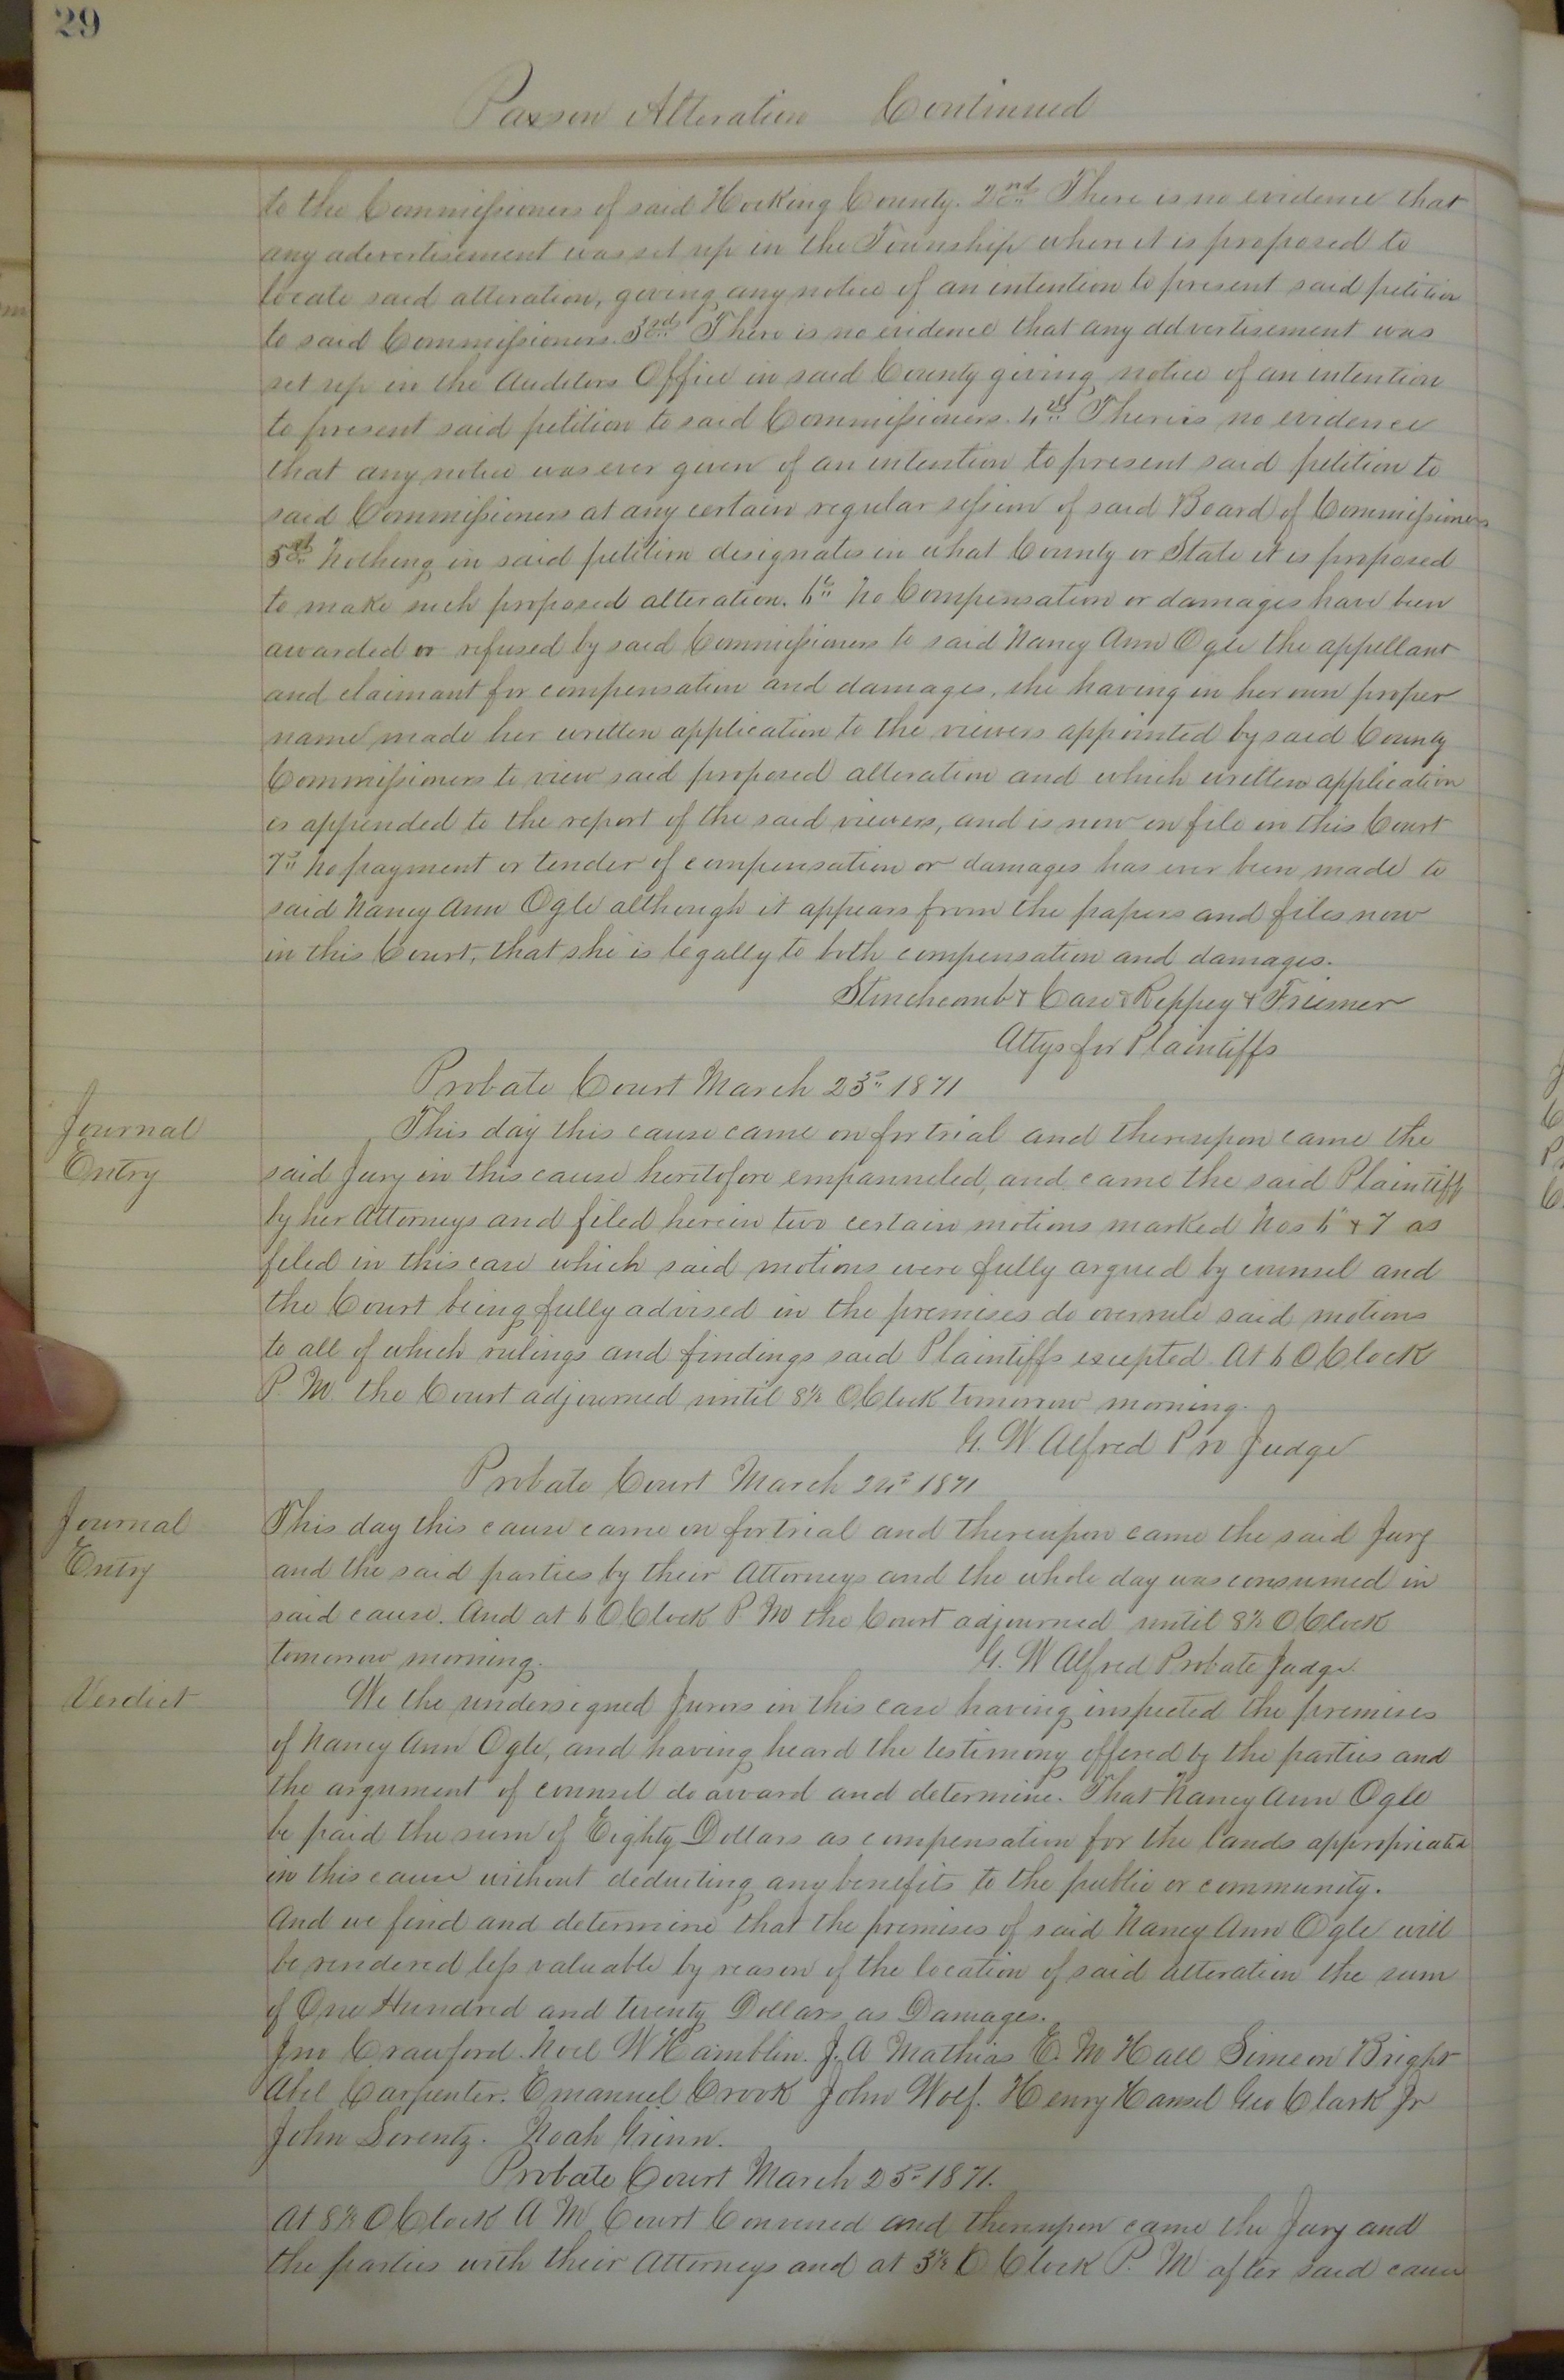 29
Paxson Alteration Continued
to the Commissioners of said Hocking County. 2nd There is no evidence that
any advertisement was set up in the Township where it is proposed to
locate said alteration, giving any notice of an intention to present said petition
to said Commissioners. 3rd There is no evidence that any advertisement was
set up in the Auditors Office in said County giving notice of an intention
to present said petition to said Commissioners. 4th There is no evidence
that any notice was ever given of an intention to present said petition to
said Commissioners at any certain regular session of said Board of Commissioners
5th Nothing in said petition designates in what County or State it is proposed
to make such proposed alteration. 6th No Compensation or damages have been
awarded or refused by said Commissioners to said Nancy Ann Ogle the appellant
and claimant for compensation and damages, she having in her own proper
name made her written application to the viewers appointed by said County
Commissioners to view said proposed alteration and which written application
is appended to the report of the said viewers, and is now on file in this Court
7th No payment or tender of compensation or damages has ever been made to
said Nancy Ann Ogle although it appears from the papers and files now
in this Court, that she is legally to both compensation and damages.
Stinchcomb & Case & Reppey & Friesner
Attys for Plaintiffs
Probate Court March 23" 1871
Journal Entry
This day this cause came on for trial and thereupon came the
said Jury in this cause heretofore empanneled, and came the said Plaintiff
by her Attorneys and filed herein two certain motions marked Nos 6 & 7 as
filed in this case which said motions were fully argued by counsel and
the Court being fully advised in the premises do overrule said motions
to all of which rulings and findings said Plaintiffs excepted. At 6 OClock
P. M. the Court adjourned until 8½ OClock tomorrow morning.
G. W. Alfred Pro Judge
Probate Court March 24" 1871
Journal Entry
This day this cause came on for trial and thereupon came the said Jury
and the said parties by their Attorneys and the whole day was consumed in
said cause. And at 6 OClock P. M the Court adjourned until 8½ OClock
tomorrow morning.
G. W Alfred Probate Judge
Verdict
We the undersigned Jurors in this case having inspected the premises
of Nancy Ann Ogle, and having heard the testimony offered by the parties and
the argument of counsel do award and determine. That Nancy Ann Ogle
be paid the sum of Eighty Dollars as compensation for the lands appropriated
in this cause without deducting any benefits to the public or community.
And we find and determine that the premises of said Nancy Ann Ogle will
be rendered less valuable by reason of the location of said alteration the sum
of One Hundred and twenty Dollars as Damages.
Jno Crawford. Noel W Hamblin. J. A Mathias E. M Hall Simeon Bright
Abel Carpenter. Emanuel Crook John Wolf. Henry Hansel Geo Clark Jr
John Lorentz. Noah Grinn.
Probate Court March 25" 1871.
At 8½ OClock A M Court Convened and thereupon came the Jury and
the parties with their Attorneys and at 3½ O Clock P. M after said cause